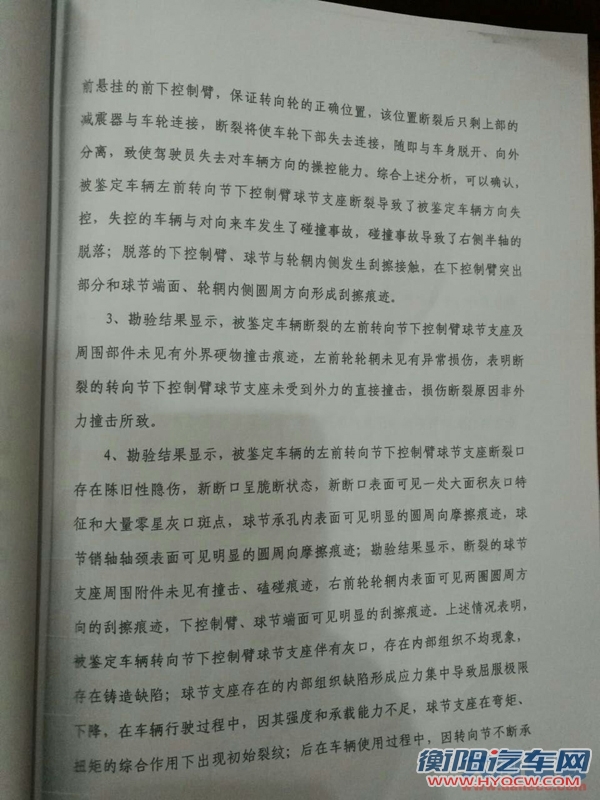 前悬挂的前下控制臂，保证转向轮的正确位置，该位置断裂后只剩上部的
减震器与车轮连接，断裂将使车轮下部失去连接，随即与车身脱开、向外
分离，致使驾驶员失去对车辆方向的操控能力。综合上述分析，可以确认，
被鉴定车辆左前转向节下控制臂球节支座断裂导致了被鉴定车辆方向失
控，失控的车辆与对向来车发生了碰撞事故，碰撞事故导致了右侧半轴的
脱落；脱落的下控制臂、球节与轮辋内侧发生刮擦接触，在下控制臂突出
部分和球节端面、轮辋内侧圆周方向形成刮擦痕迹。
3、勘验结果显示，被鉴定车辆断裂的左前转向节下控制臂球节支座及
周围部件未见有外界硬物撞击痕迹，左前轮轮辋未见有异常损伤，表明断
裂的转向节下控制臂球节支座未受到外力的直接撞击，损伤断裂原因非外
力撞击所致。
4、勘验结果显示，被鉴定车辆的左前转向节下控制臂球节支座断裂口
存在陈旧性隐伤，新断口呈脆断状态，新断口表面可见一处大面积灰口特
征和大量零星灰口斑点，球节承孔内表面可见明显的圆周向摩擦痕迹，球
节销轴轴颈表面可见明显的圆周向摩擦痕迹；勘验结果显示，断裂的球节
支座周围附件未见有撞击、磕碰痕迹，右前轮轮辋内表面可见两圈圆周方
向的刮擦痕迹，下控制臂、球节端面可见明显的刮擦痕迹。上述情况表明，
被鉴定车辆转向节下控制臂球节支座伴有灰口，存在内部组织不均现象，
存在铸造缺陷；球节支座存在的内部组织缺陷形成应力集中导致屈服极限
下降，在车辆行驶过程中，因其强度和承载能力不足，球节支座在弯矩、
扭矩的综合作用下出现初始裂纹；后在车辆使用过程中，因转向节不断承
衡阳汽车网
WWW.HYQCW.COM